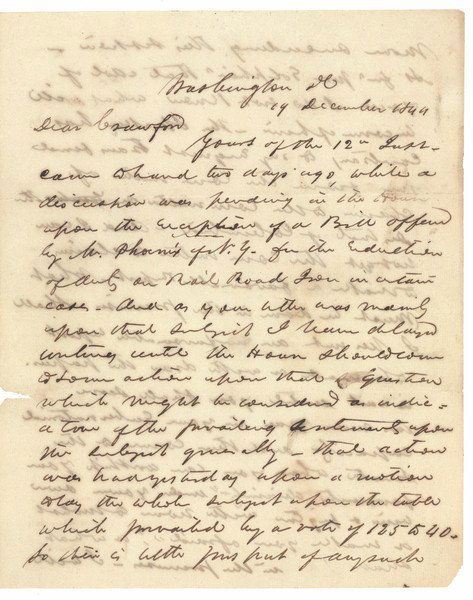 Washington DC
19 December 1844
Dear Crawford
Yours of the 12th Inst-
came to hand two days ago, while a
discussion was pending in the House
upon the reception of a Bill offered
by Mr. Phoenix of N.Y. for the reduction
of duty on Rail Road Iron in certain
cases. And as your letter was mainly
upon that subject I have delayed
writing until the House should come
to some action upon that question
which might be considered as indic=
ative of the prevailing sentiment upon
the subject generally - that action
was had yesterday upon a motion
to lay the whole subject upon the table
which prevailed by a vote of 125 to 40-
so there is little prospect of any such